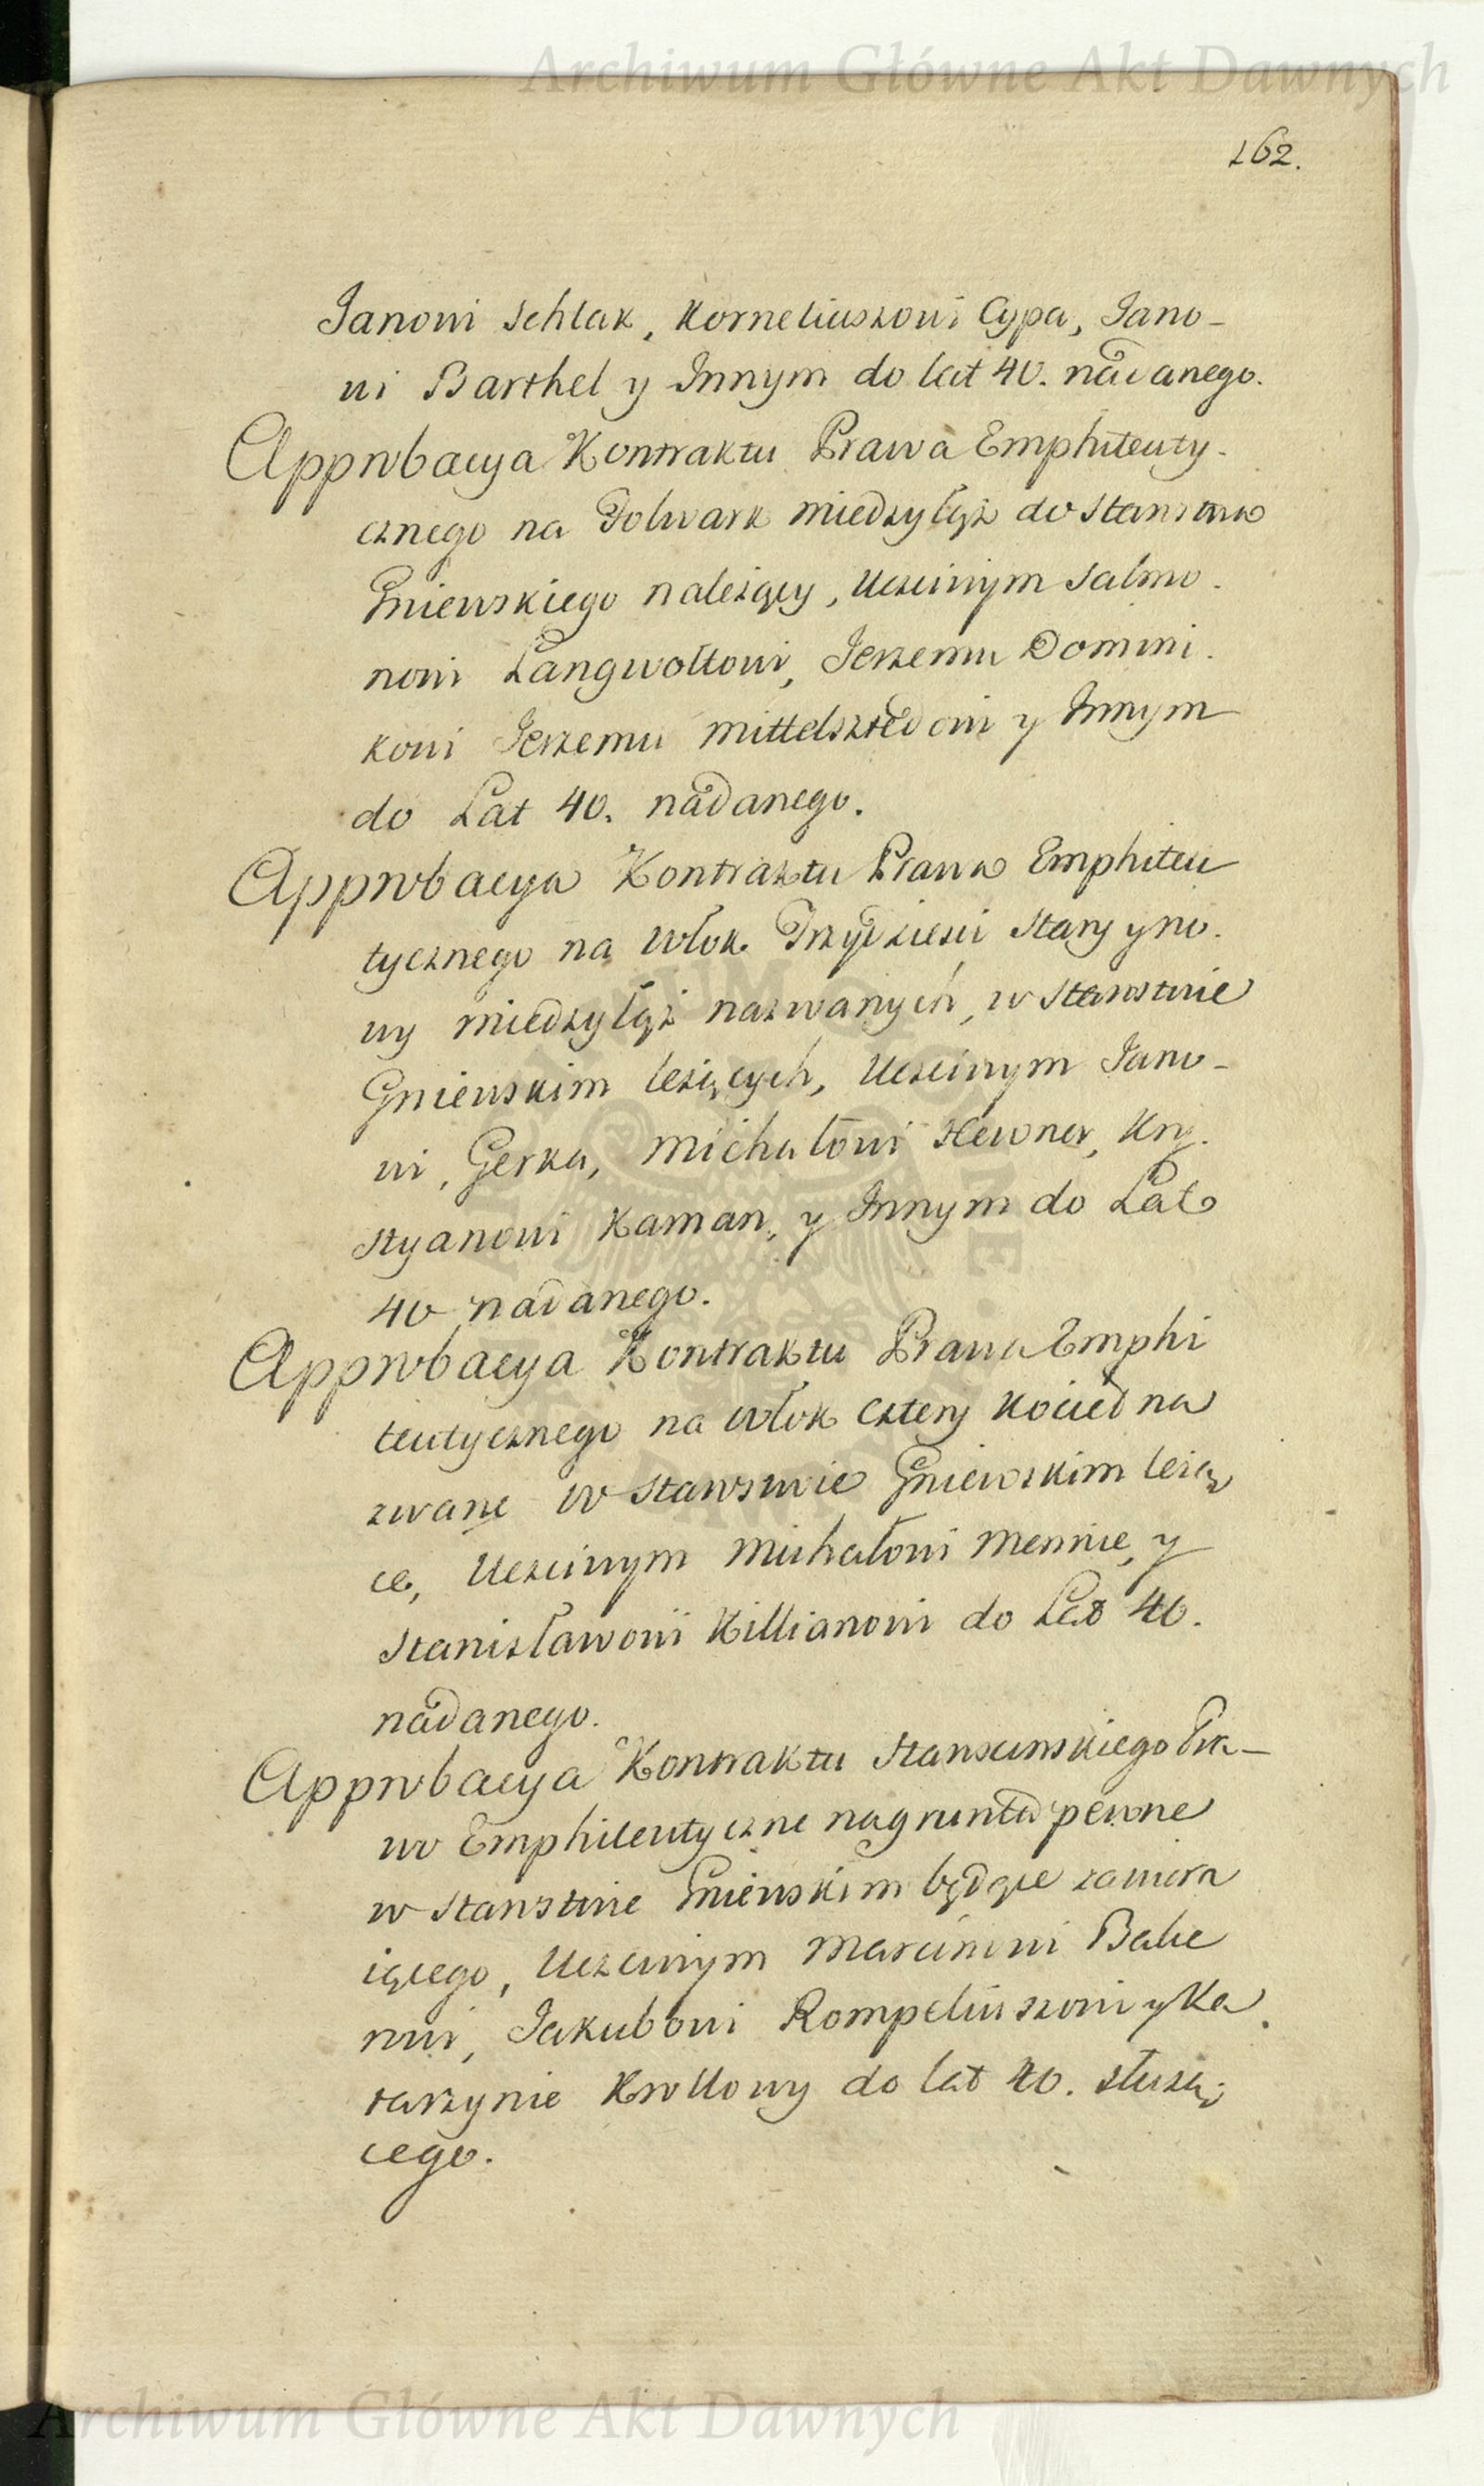 Archiwum Główne Akt Dawnych
162.
Janowi Schlak, Korneliuszowi Cypa, Jano-
wi Barthel y Innym do lat 40. nadanego.
Approbacya Kontraktu Prawa Emphiteuty-
cznego na Folwark miedzyłęż do Starostwa
Gniewskiego należący, Uczciwym Salmo-
nowi Langwoltowi, Jerzemu Domini-
kowi Jerzemu Mittelsztedowi y Innym
do Lat 40. nadanego.
Approbacya Kontraktu Prawa Emphiteu
tycznego na włok Trzydzieści Stary y no-
wy miedzyłęż nazwanych, w Starostwie
Gniewskim leżących, Uczciwym Jano-
wi, Gerka, Michałowi Hewner, Kry-
styanowi Kaman, y Innym do Lat
40 nadanego.
Approbacya Kontraktu Prawa Emphi
teutycznego na włok cztery Kociel na
zwane w Starostwie Gniewskim leżą
ce, Uczciwym Michałowi Mennie, y
Stanisławowi Killianowi do Lat 40.
nadanego.
Approbacya Kontraktu Starościnskiego Pra-
wo Emphiteutyczne na grunta pewne
w Starostwie Gniewskim będące zawiera
iącego, Uczciwym Marcinowi Babe
nowi, Jakubowi Rompeliuszowi y Ka
tarzynie Krollowy do lat 40. służą-
cego.
Archiwum Główne Akt Dawnych